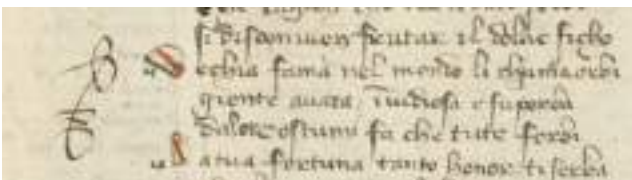 si disconuien fructar il dolce ficho
Vechia fama nel mondo li chiama orbi
giente auara inuidiosa e superba
da lor costumi fa che tu te forbi
La tua fortuna tanto honor ti serba